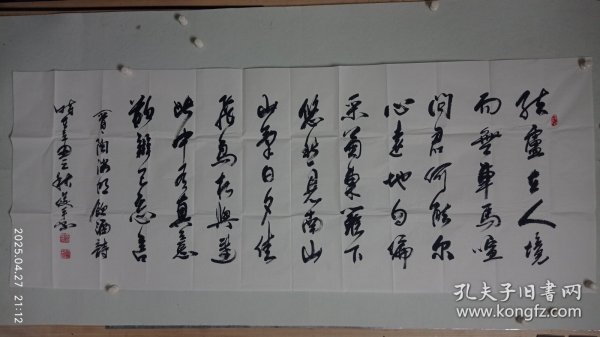 结庐在人境
而無車馬喧
问君何能尔
心遠地自偏
采菊東籬下
悠然見南山
山氣日夕佳
飛鳥相與還
此中有真意
欲辯已忘言
書陶淵明飲酒詩
2025.04.27 21:12
孔夫子旧书网
kongfz.com